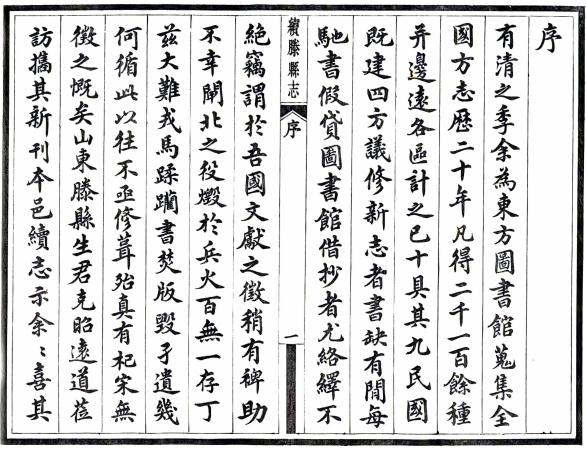 序
有清之季余為東方圖書館蒐集全
國方志歷二十年凡得二千一百餘種
并邊遠各區計之已十具其九民國
既建四方議修新志者書缺有閒每
馳書假貸圖書館借抄者尤絡繹不
續滕縣志
序
一
絕竊謂於吾國文獻之徵稍有裨助
不幸閘北之役燬於兵火百無一存丁
茲大難戎馬蹂躪書焚版毀孑遺幾
何循此以往不亟修葺殆真有杞宋無
徵之慨矣山東滕縣生君克昭遠道蒞
訪攜其新刊本邑續志示余〻喜其